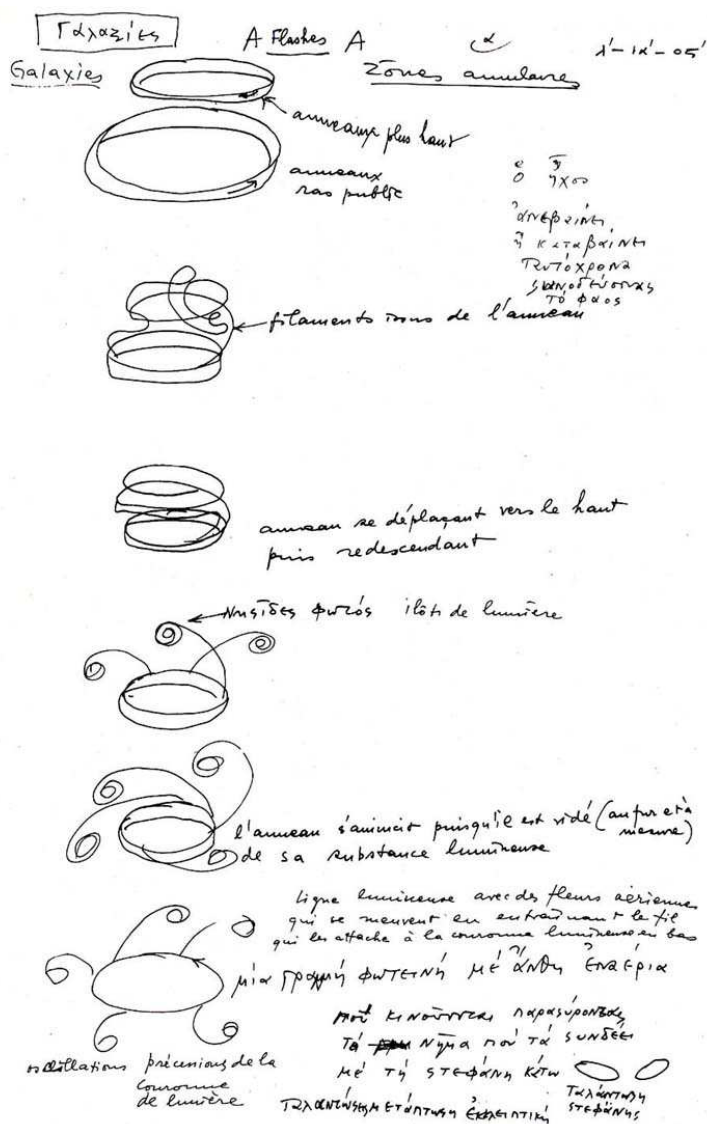 Γαλαξίες
A Flashes A
α
λ'-ια'-05'
Galaxies
Zônes annulaires
anneaux plus haut
anneaux
ras public
ὁ ἦχος
ἀνεβαίνει
ἢ καταβαίνει
ταυτόχρονα
τό φάος
filaments issus de l'anneau
anneau se déplaçant vers le haut
puis redescendant
Νησίδες φωτός ilôts de lumière
l'anneau s'amincit puisqu'il est vidé (au fur et à
mesure)
de sa substance lumineuse
Ligne lumineuse avec des fleurs aériennes
qui se meuvent en entraînant le fil
qui les attache à la couronne lumineuse en bas
μία γραμμή φωτεινή μέ ἄνθη ἐναέρια
πού κινοῦνται παρασύροντας
Τό νῆμα πού τά συνδέει
μέ τή στεφάνη κάτω
oscillations précessions de la
couronne
de lumière
Ταλάντωση
στεφάνης
μετάπτωση ἐκλειπτική